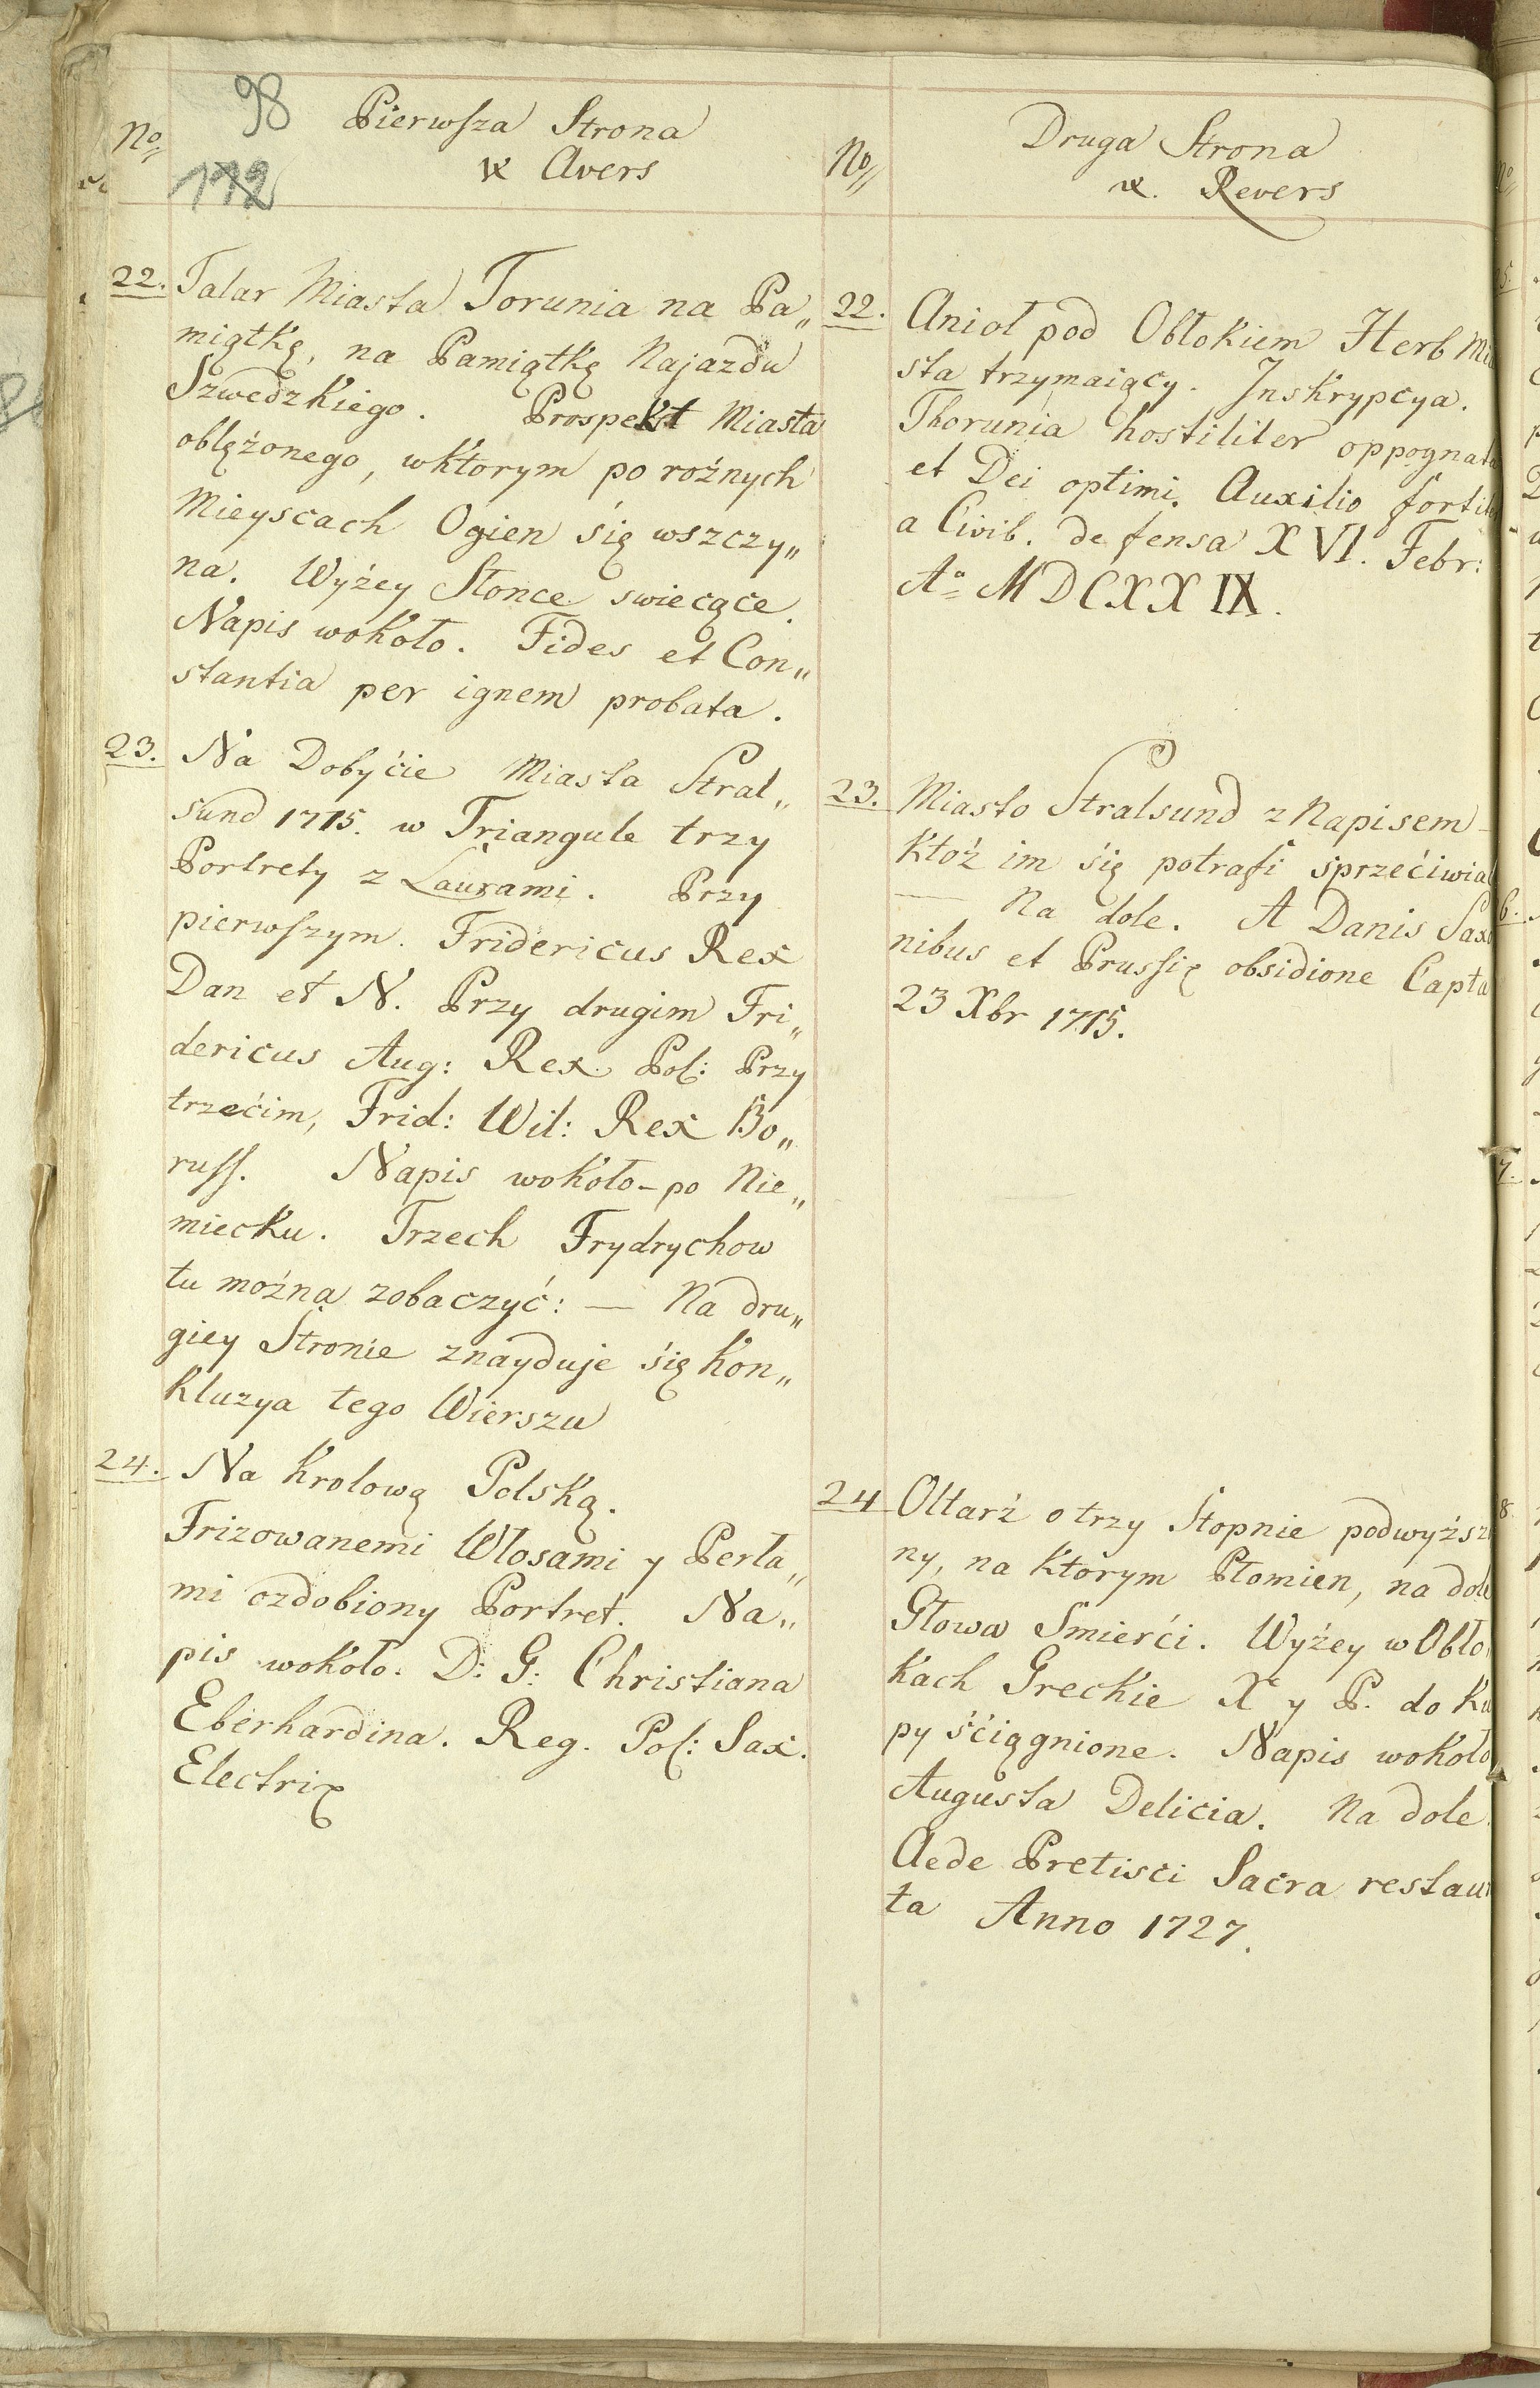 98
112
No
Pierwsza Strona
Avers
22. Talar Miasta Torunia na Pa„
miątkę, na Pamiątkę Najazdu
Szwedzkiego. Prospekt Miasta
oblężonego, wktorym po rożnych
Mieyscach Ogien się wszczy„
na. Wyżey Słonce swiecące.
Napis wokoło. Fides et Con„
stantia per ignem probata.
23. Na Dobyćie Miasta Stral„
sund 1715. w Triangule trzy
Portrety z Laurami. Przy
pierwszym. Fridericus Rex
Dan et N. Przy drugim Fri„
dericus Aug: Rex Pol: Przy
trzećim, Frid: Wil: Rex Bo„
russ. Napis wokoło - po Nie„
miecku. Trzech Frydrychow
tu można zobaczyć: — Na dru„
giey Stronie znayduje się Kon„
kluzya tego Wierszu
24. Na Krolowę Polską.
Frizowanemi Włosami y Perła„
mi ozdobiony Portret. Na„
pis wokoło: D: G: Christiana
Eberhardina. Reg. Pol: Sax.
Electrix
No
Druga Strona
Revers
22. Anioł pod Obłokiem Herb
sta trzymaiący. Inskrypcya.
Thorunia hostiliter oppognata
et Dei optimi. Auxilio
a Civib. defensa XVI. Febr:
Ao MDCXXIX.
23. Miasto Stralsund z Napisem -
Ktoż im się potrafi
— Na dole. A Danis
nibus et Prussis obsidione Capta
23 Xbr 1715.
24 Ołtarż o trzy Stopnie
ny, na ktorym Płomien, na dole
Głowa Smierći. Wyżey w
kach Greckie X y P. do
py śćiągnione. Napis wokoło
Augusta Delicia. Na dole.
Aede Pretisci Sacra
ta Anno 1727.